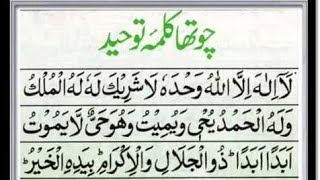 چوتھا کلمہ توحید
لَآ اِلٰهَ اِلَّا اللّٰهُ وَحْدَهٗ لَا شَرِيْكَ لَهٗ لَهُ الْمُلْكُ
وَلَهُ الْحَمْدُ يُحْيٖ وَيُمِيْتُ وَهُوَ حَیٌّ لَّا يَمُوْتُ
اَبَدًا اَبَدًا ؕ ذُو الْجَلَالِ وَالْاِكْرَامِ ؕ بِيَدِهِ الْخَيْرُ ؕ